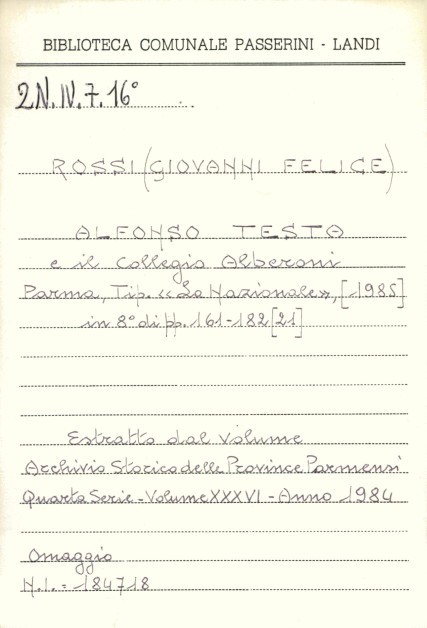 BIBLIOTECA COMUNALE PASSERINI - LANDI
2N.IV.7.16°
ROSSI (GIOVANNI FELICE)
ALFONSO TESTA
e il Collegio Alberoni
Parma, Tip. «La Nazionale», [1985]
in 8° di pp. 161-182 [21]
Estratto dal Volume
Archivio Storico delle Province Parmensi
Quarta Serie - Volume XXXVI - Anno 1984
Omaggio
N.I. = 184718